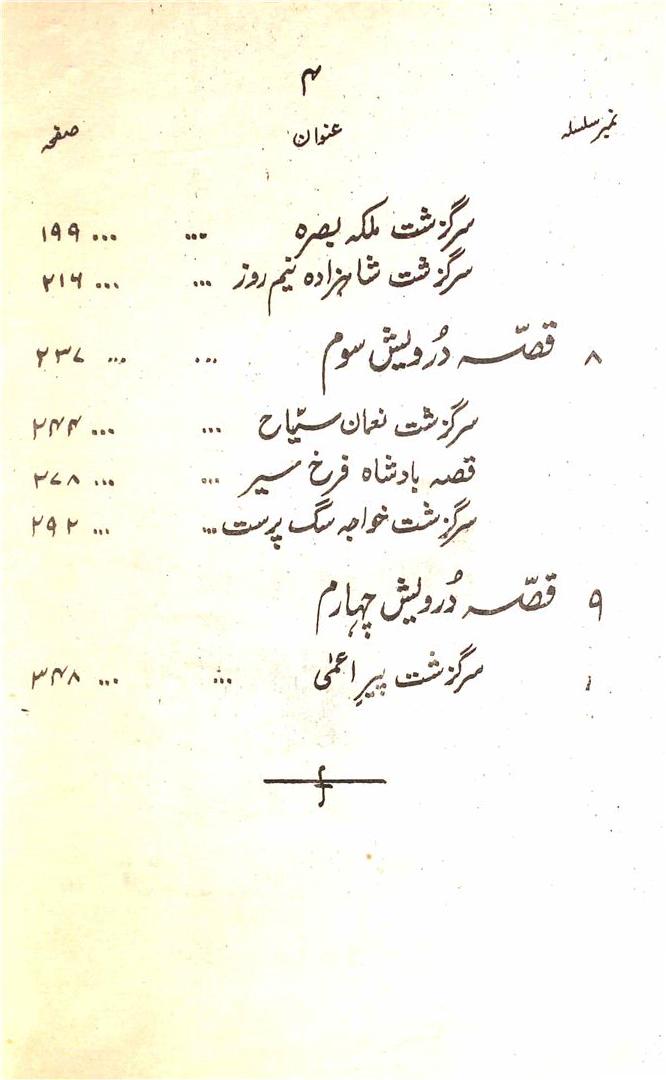 ۴
نمبر سلسلہ عنوان صفحہ
سرگزشت ملکہ بصرہ ... ... ۱۹۹
سرگزشت شاہزادہ نیم روز ... ... ۲۱۶
۸ قصّہ دُرویش سوم ... ... ۲۳۷
سرگزشت نعمان سیّاح ... ... ۲۴۴
قصہ بادشاہ فرخ سیر ... ... ۲۷۸
سرگزشت خواجہ سگ پرست ... ... ۲۹۲
۹ قصّہ دُرویش چہارم
سرگزشت پیرِ اعمٰی ... ... ۳۴۸